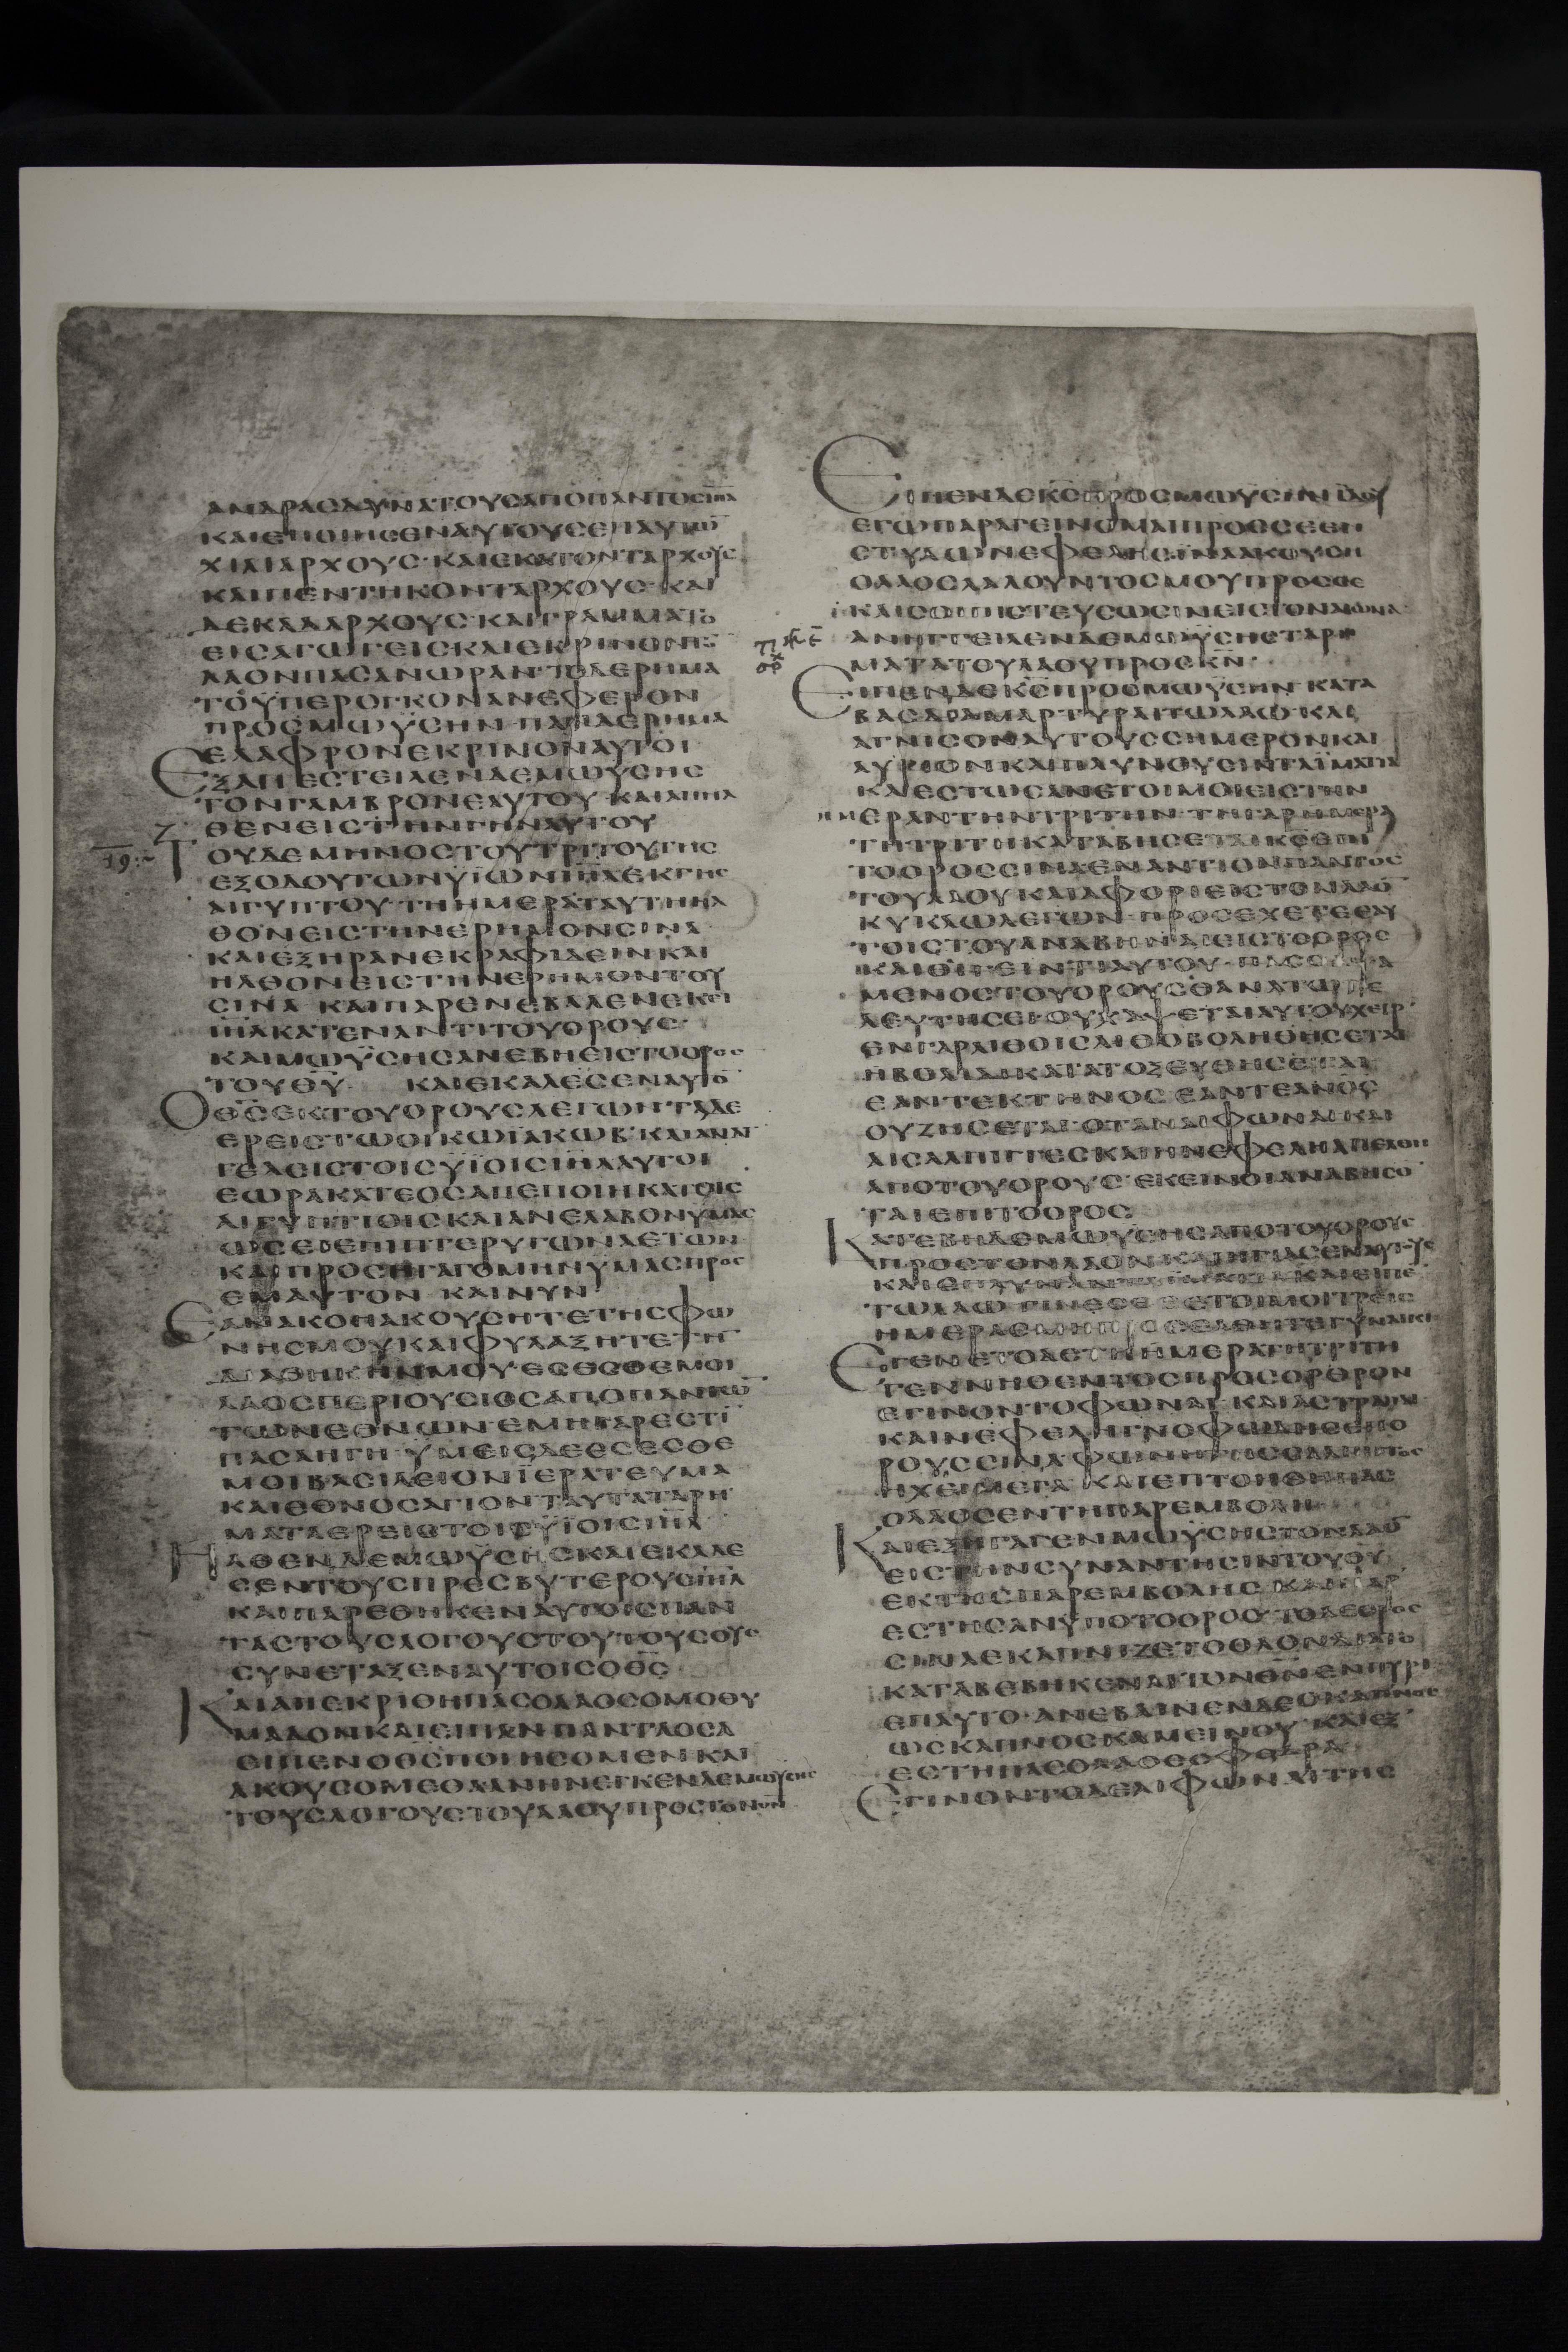 ΑΝΔΡΑΣΔΥΝΑΤΟΥΣΑΠΟΠΑΝΤΟΣΙΗΛ
ΚΑΙΕΠΟΙΗΣΕΝΑΥΤΟΥΣΕΠΑΥΤΩ̅
ΧΙΛΙΑΡΧΟΥΣ·ΚΑΙΕΚΑΤΟΝΤΑΡΧΟΥΣ
ΚΑΙΠΕΝΤΗΚΟΝΤΑΡΧΟΥΣ·ΚΑΙ
ΔΕΚΑΔΑΡΧΟΥΣ·ΚΑΙΓΡΑΜΜΑΤΟ
ΕΙΣΑΓΩΓΕΙΣΚΑΙΕΚΡΙΝΟΝΤΟ̅
ΛΑΟΝΠΑΣΑΝΩΡΑΝ·ΤΟΔΕΡΗΜΑ
ΤΟΫΠΕΡΟΓΚΟΝΑΝΕΦΕΡΟΝ
ΠΡΟΣΜΩΫΣΗΝ·ΠΑΝΔΕΡΗΜΑ
ΕΛΑΦΡΟΝΕΚΡΙΝΟΝΑΥΤΟΙ
ΕΞΑΠΕΣΤΕΙΛΕΝΔΕΜΩΥΣΗΣ
ΤΟΝΓΑΜΒΡΟΝΕΑΥΤΟΥ·ΚΑΙΑΠΗΛ
ΘΕΝΕΙΣΤΗΝΓΗΝΑΥΤΟΥ
19:~ ΤΟΥΔΕΜΗΝΟΣΤΟΥΤΡΙΤΟΥΤΗΣ
ΕΞΟΔΟΥΤΩΝΫΙΩΝΙΗΛΕΚΓΗΣ
ΑΙΓΥΠΤΟΥ·ΤΗΗΜΕΡΑΤΑΥΤΗΗΛ
ΘΟΝΕΙΣΤΗΝΕΡΗΜΟΝΣΙΝΑ
ΚΑΙΕΞΗΡΑΝΕΚΡΑΦΙΔΕΙΝΚΑΙ
ΗΛΘΟΝΕΙΣΤΗΝΕΡΗΜΟΝΤΟΥ
ΣΙΝΑ·ΚΑΙΠΑΡΕΝΕΒΑΛΕΝΕΚΕΙ
ΙΗΛΚΑΤΕΝΑΝΤΙΤΟΥΟΡΟΥΣ·
ΚΑΙΜΩΫΣΗΣΑΝΕΒΗΕΙΣΤΟΟΡΟΣ
ΤΟΥΘΥ ΚΑΙΕΚΑΛΕΣΕΝΑΥΤΟ̅
ΟΘΣΕΚΤΟΥΟΡΟΥΣΛΕΓΩΝΤΑΔΕ
ΕΡΕΙΣΤΩΟΙΚΩΪΑΚΩΒ·ΚΑΙΑΝΑΓ
ΓΕΛΕΙΣΤΟΙΣΫΪΟΙΣΙΗΛΑΥΤΟΙ
ΕΩΡΑΚΑΤΕΟΣΑΠΕΠΟΙΗΚΑΤΟΙΣ
ΑΙΓΥΠΤΙΟΙΣΚΑΙΑΝΕΛΑΒΟΝΫΜΑΣ
ΩΣΕΙΕΠΙΠΤΕΡΥΓΩΝΑΕΤΩΝ
ΚΑΙΠΡΟΣΗΓΑΓΟΜΗΝΫΜΑΣΠΡΟΣ
ΕΜΑΥΤΟΝ ΚΑΙΝΥΝ
ΕΑΝΑΚΟΗΑΚΟΥΣΗΤΕΤΗΣΦΩ
ΝΗΣΜΟΥΚΑΙΦΥΛΑΞΗΤΕΤΗ̅
ΔΙΑΘΗΚΗΝΜΟΥ·ΕΣΕΣΘΕΜΟΙ
ΛΑΟΣΠΕΡΙΟΥΣΙΟΣΑΠΟΠΑΝΤΩ̅
ΤΩΝΕΘΝΩΝ·ΕΜΗΓΑΡΕΣΤΙ̅
ΠΑΣΑΗΓΗ·ΫΜΕΙΣΔΕΕΣΕΣΘΕ
ΜΟΙΒΑΣΙΛΕΙΟΝΪΕΡΑΤΕΥΜΑ
ΚΑΙΕΘΝΟΣΑΓΙΟΝΤΑΥΤΑΤΑΡΗ
ΜΑΤΑΕΡΕΙΣΤΟΙΣΫΪΟΙΣΙΗΛ
ΗΛΘΕΝΔΕΜΩΫΣΗΣΚΑΙΕΚΑΛΕ
ΣΕΝΤΟΥΣΠΡΕΣΒΥΤΕΡΟΥΣΙΗΛ
ΚΑΙΠΑΡΕΘΗΚΕΝΑΥΤΟΙΣΠΑΝ
ΤΑΣΤΟΥΣΛΟΓΟΥΣΤΟΥΤΟΥΣΟΥΣ
ΣΥΝΕΤΑΞΕΝΑΥΤΟΙΣΟΘΣ
ΚΑΙΑΠΕΚΡΙΘΗΠΑΣΟΛΑΟΣΟΜΟΘΥ
ΜΑΔΟΝΚΑΙΕΙΠΑΝΠΑΝΤΑΟΣΑ
ΕΙΠΕΝΟΘΣΠΟΙΗΣΟΜΕΝΚΑΙ
ΑΚΟΥΣΟΜΕΘΑΑΝΗΝΕΓΚΕΝΔΕΜΩΥΣΗΣ
ΤΟΥΣΛΟΓΟΥΣΤΟΥΛΑΟΥΠΡΟΣΤΟΝΘΝ
ΕΙΠΕΝΔΕΚΣΠΡΟΣΜΩΫΣΗΝΙΔΟΥ
ΕΓΩΠΑΡΑΓΕΙΝΟΜΑΙΠΡΟΣΣΕΕΝ
ΣΤΥΛΩΝΕΦΕΛΗΣΙΝΑΑΚΟΥΣΗ
ΟΛΑΟΣΛΑΛΟΥΝΤΟΣΜΟΥΠΡΟΣΣΕ
ΚΑΙΣΟΙΠΙΣΤΕΥΣΩΣΙΝΕΙΣΤΟΝΑΙΩΝΑ
ΑΝΗΓΓΕΙΛΕΝΔΕΜΩΫΣΗΣΤΑΡΗ
ΜΑΤΑΤΟΥΛΑΟΥΠΡΟΣΚΝ·
ΕΙΠΕΝΔΕΚΣΠΡΟΣΜΩΫΣΗΝ·ΚΑΤΑ
ΒΑΣΔΙΑΜΑΡΤΥΡΑΙΤΩΛΑΩ·ΚΑΙ
ΑΓΝΙΣΟΝΑΥΤΟΥΣΣΗΜΕΡΟΝΚΑΙ
ΑΥΡΙΟΝΚΑΙΠΛΥΝΟΥΣΙΝΤΑΪΜΑΤΙΑ
ΚΑΙΕΣΤΩΣΑΝΕΤΟΙΜΟΙΕΙΣΤΗΝ
ΗΜΕΡΑΝΤΗΝΤΡΙΤΗΝ·ΤΗΓΑΡΗΜΕΡΑ
ΤΗΤΡΙΤΗΚΑΤΑΒΗΣΕΤΑΙΚΣΕΠΙ
ΤΟΟΡΟΣΣΙΝΑΕΝΑΝΤΙΟΝΠΑΝΤΟΣ
ΤΟΥΛΑΟΥΚΑΙΑΦΟΡΙΕΙΣΤΟΝΛΑΟ̅
ΚΥΚΛΩΛΕΓΩΝ·ΠΡΟΣΕΧΕΤΕΕΑΥ
ΤΟΙΣΤΟΥΑΝΑΒΗΝΑΙΕΙΣΤΟΟΡΟΣ
ΚΑΙΘΙΓΕΙΝΤΙΑΥΤΟΥ·ΠΑΣΟΑΨΑ
ΜΕΝΟΣΤΟΥΟΡΟΥΣΘΑΝΑΤΩΤΕ
ΛΕΥΤΗΣΕΙ·ΟΥΧΑΨΕΤΑΙΑΥΤΟΥΧΕΙΡ
ΕΝΓΑΡΛΙΘΟΙΣΛΙΘΟΒΟΛΗΘΗΣΕΤΑΙ
ΗΒΟΛΙΔΙΚΑΤΑΤΟΞΕΥΘΗΣΕΤΑΙ
ΕΑΝΤΕΚΤΗΝΟΣΕΑΝΤΕΑΝΟΣ
ΟΥΖΗΣΕΤΑΙ·ΟΤΑΝΑΙΦΩΝΑΙΚΑΙ
ΑΙΣΑΛΠΙΓΓΕΣΚΑΙΗΝΕΦΕΛΗΑΠΕΛΘΗ
ΑΠΟΤΟΥΟΡΟΥΣ·ΕΚΕΙΝΟΙΑΝΑΒΗΣΟ
ΤΑΙΕΠΙΤΟΟΡΟΣ
ΚΑΤΕΒΗΔΕΜΩΥΣΗΣΑΠΟΤΟΥΟΡΟΥΣ
ΠΡΟΣΤΟΝΛΑΟΝΚΑΙΗΓΙΑΣΕΝΑΥΤΟΥΣ
ΚΑΙΕΠΛΥΝΑΝ ΚΑΙΕΙΠΕ̅
ΤΩΛΑΩ ΓΙΝΕΣΘΕΕΤΟΙΜΟΙΤΡΕΙΣ
ΗΜΕΡΑΣΜΗΠΡΟΣΕΛΘΗΤΕΓΥΝΑΙΚΙ
ΕΓΕΝΕΤΟΔΕΤΗΗΜΕΡΑΤΗΤΡΙΤΗ
ΓΕΝΝΗΘΕΝΤΟΣΠΡΟΣΟΡΘΡΟΝ
ΕΓΙΝΟΝΤΟΦΩΝΑΙ·ΚΑΙΑΣΤΡΑΠΑΙ
ΚΑΙΝΕΦΕΛΗΓΝΟΦΩΔΗΣΕΠΟ
ΡΟΥΣΣΙΝΑΦΩΝΗΤΗΣΣΑΛΠΙΓΓΟΣ
ΗΧΕΙΜΕΓΑ·ΚΑΙΕΠΤΟΗΘΗΠΑΣ
ΟΛΑΟΣΕΝΤΗΠΑΡΕΜΒΟΛΗ
ΚΑΙΕΞΗΓΑΓΕΝΜΩΫΣΗΣΤΟΝΛΑΟ̅
ΕΙΣΤΗΝΣΥΝΑΝΤΗΣΙΝΤΟΥΘΥ
ΕΚΤΗΣΠΑΡΕΜΒΟΛΗΣ·ΚΑΙΠΑΡ
ΕΣΤΗΣΑΝΫΠΟΤΟΟΡΟΣ·ΤΟΔΕΟΡΟΣ
ΣΙΝΑΕΚΑΠΝΙΖΕΤΟΟΛΟΝΔΙΑΤΟ
ΚΑΤΑΒΕΒΗΚΕΝΑΙΤΟΝΘΝΕΝΠΥΡΙ
ΕΠΑΥΤΟ·ΑΝΕΒΑΙΝΕΝΔΕΟΚΑΠΝΟΣ
ΩΣΚΑΠΝΟΣΚΑΜΕΙΝΟΥ·ΚΑΙΕΞ
ΕΣΤΗΠΑΣΟΛΑΟΣΣΦΟΔΡΑ·
ΕΓΙΝΟΝΤΟΔΕΑΙΦΩΝΑΙΤΗΣ